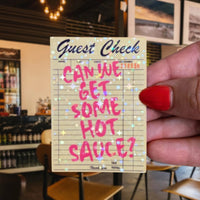 Guest Check
CAN WE
GET
SOME
HOT
SAUCE?
Thank You